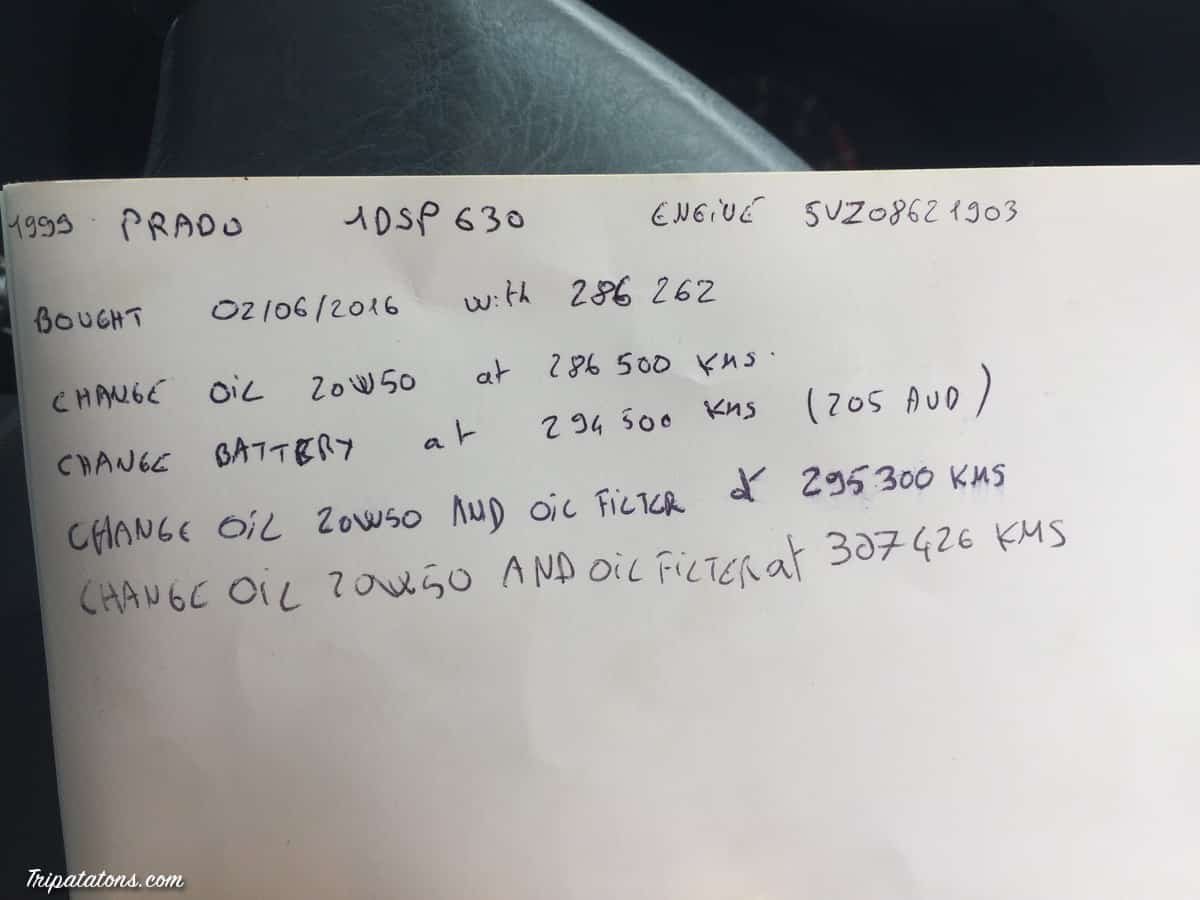 1999 PRADO 1DSP 630 ENGINE 5VZ0862 1903
BOUGHT 02/06/2016 with 286 262
CHANGE OIL 20W50 at 286 500 KMS.
CHANGE BATTERY at 294 500 KMS (205 AUD)
CHANGE OIL 20W50 AND OIL FILTER at 295300 KMS
CHANGE OIL 20W50 AND OIL FILTER at 307426 KMS
Tripatatons.com